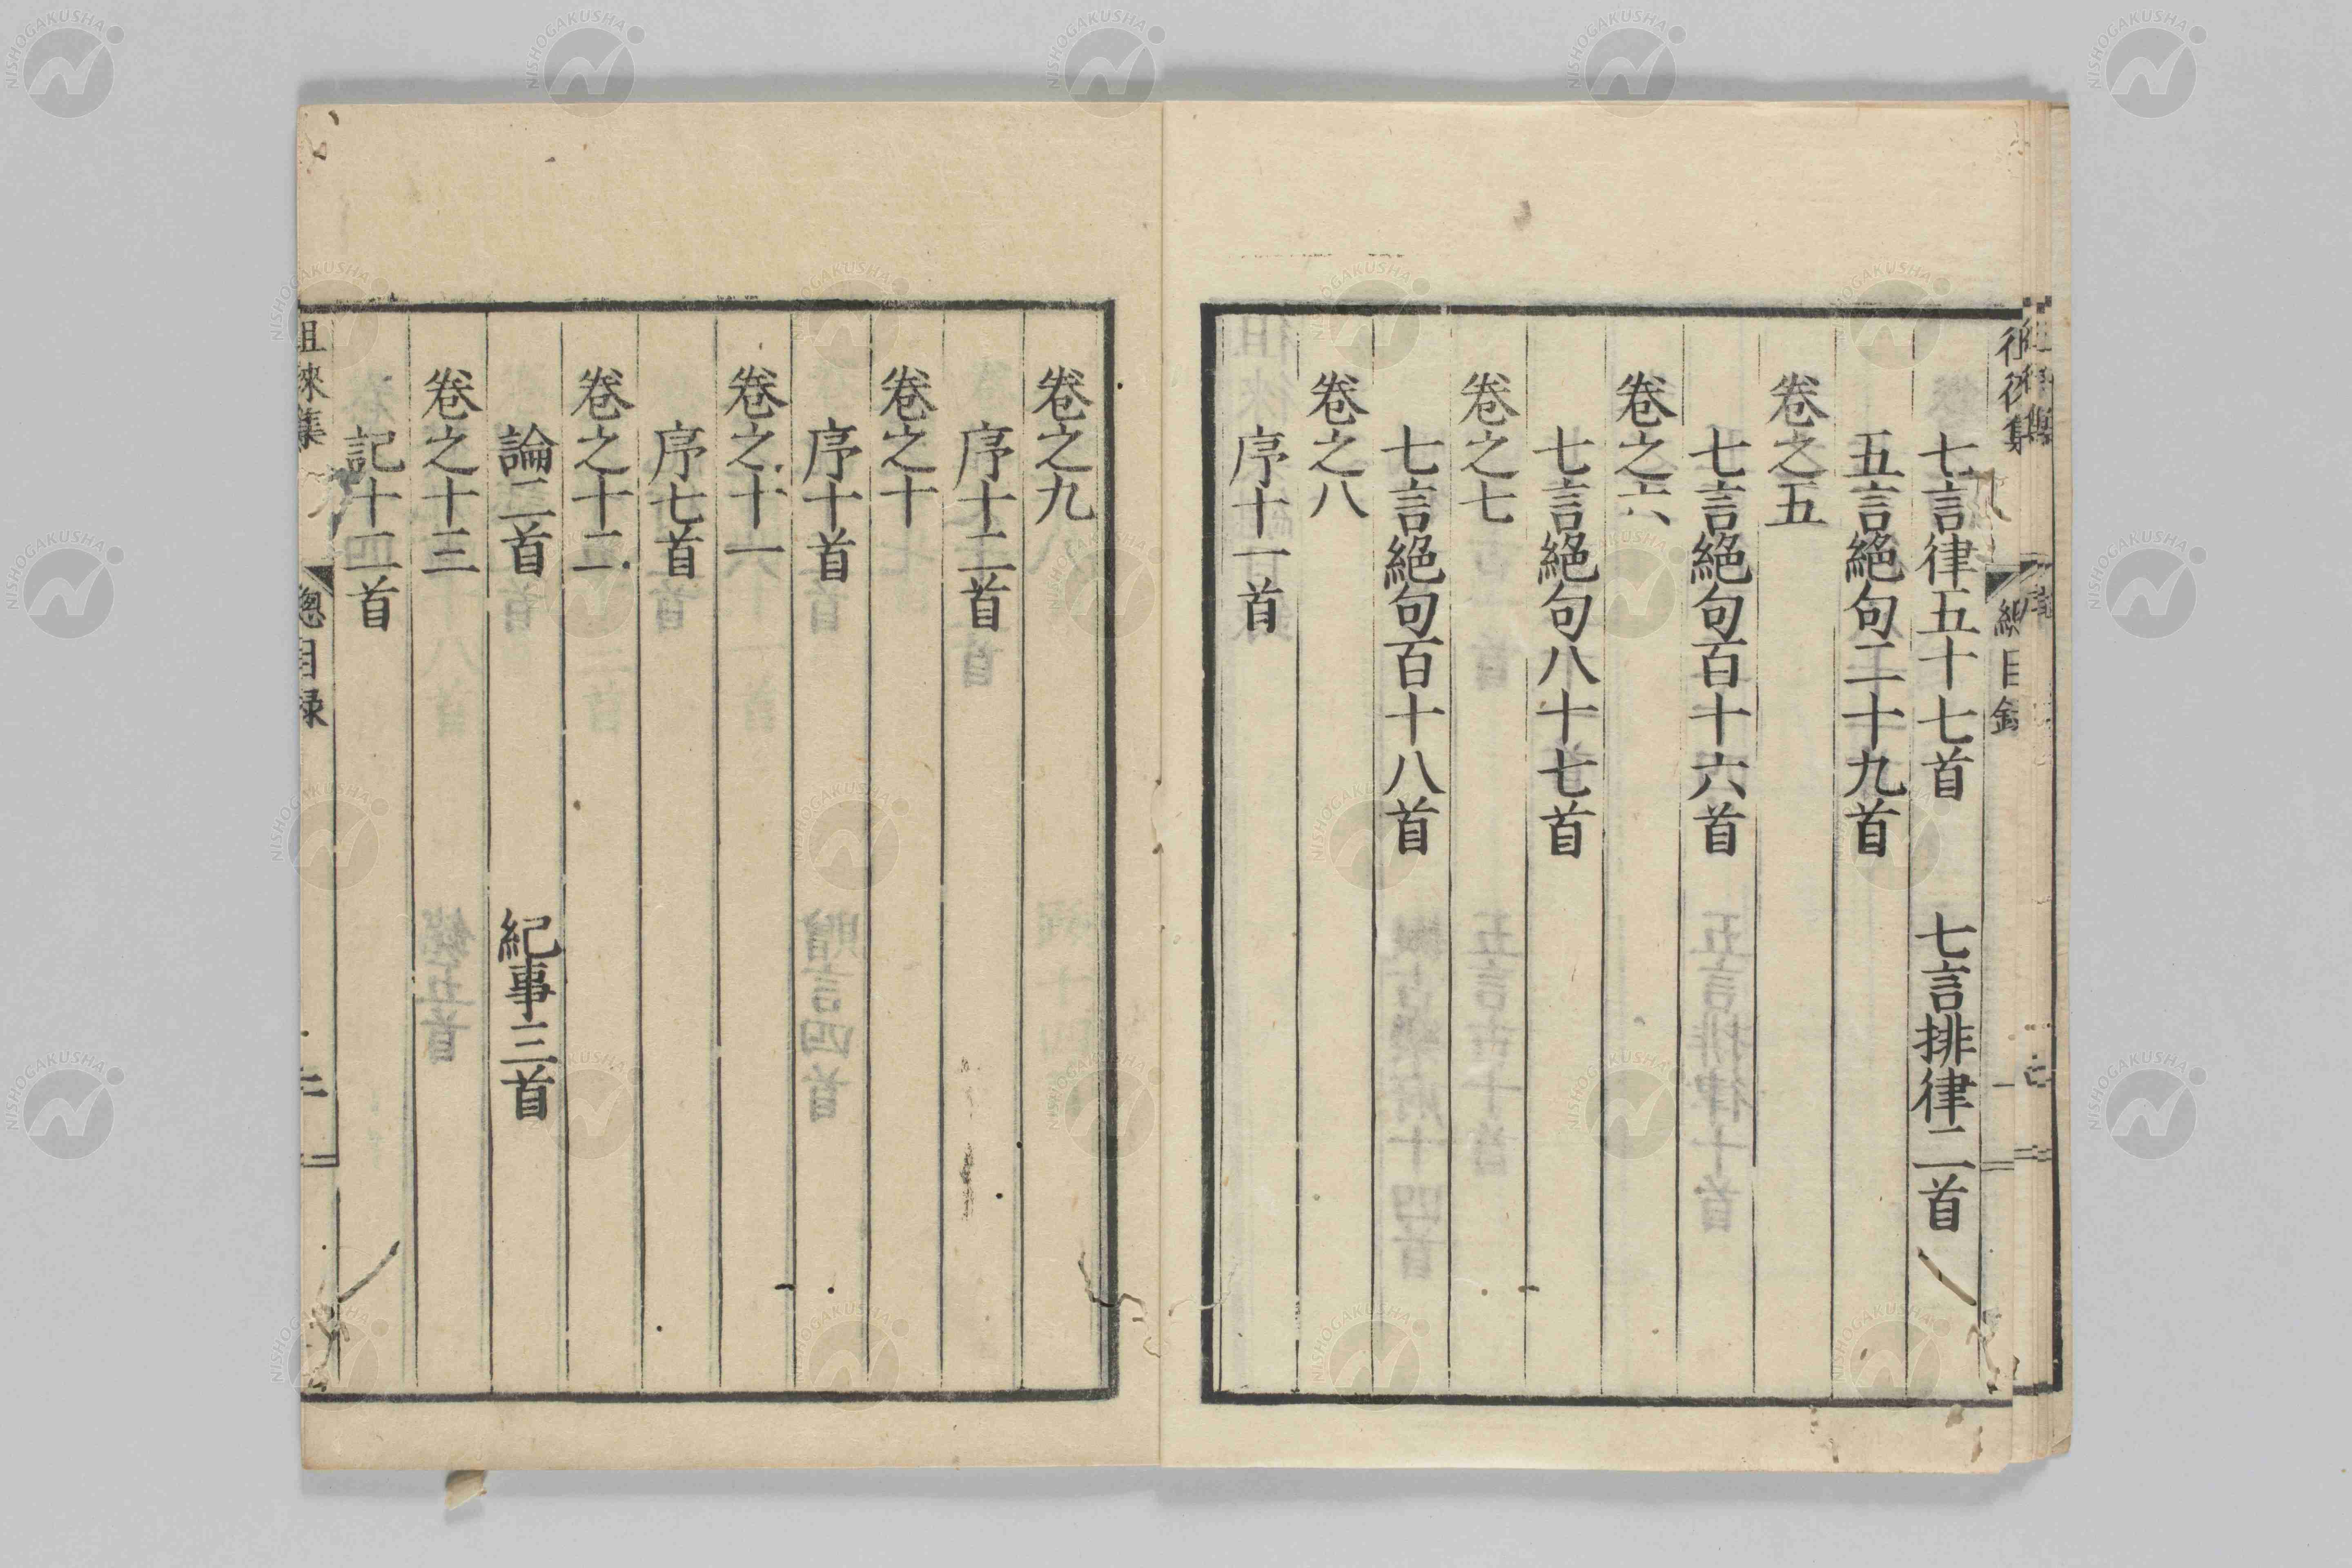 七言律五十七首 七言排律二首
五言絕句二十九首
卷之五
七言絕句百十六首
卷之六
七言絕句八十七首
卷之七
七言絕句百十八首
卷之八
序十一首
卷之九
序十二首
卷之十
序十首
卷之十一
序七首
卷之十二
論二首 紀事三首
卷之十三
記十二首
徂徠集
總目録
二
NISHOGAKUSHA